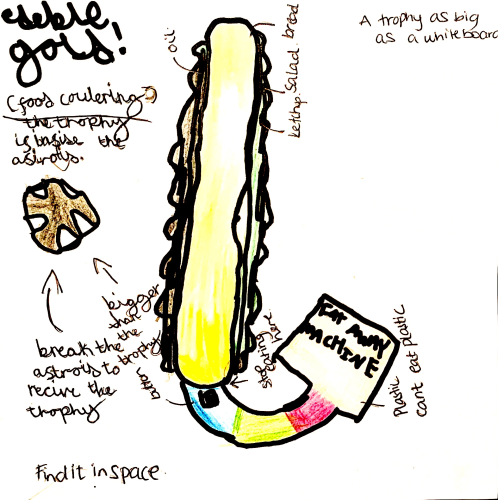 gold!
A trophy as big
as a whiteboard
(food coulering)
the trophy
is basise the
astroys.
oil
ketchup. Salad. bread
bigger
than
the
the
trophy
break the
astroys to
recive the
trophy
button
stop
here
EAT AWAY
MACHINE
Plastic
cant eat plastic
Find it in space.